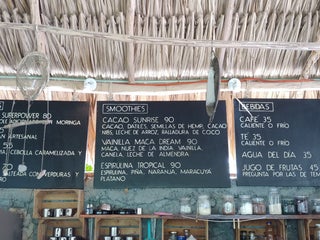 SUPERPOWER 80
MORINGA
50
ARTESANAL
CEBOLLA CARAMELIZADA Y
45
VERDURAS Y
SMOOTHIES
CACAO SUNRISE 90
CACAO, DATILES, SEMILLAS DE HEMP, CACAO
NIBS, LECHE DE ARROZ, RALLADURA DE COCO
VAINILLA MACA DREAM 90
MACA, NUEZ DE LA INDIA, VAINILLA,
CANELA, LECHE DE ALMENDRA
ESPIRULINA TROPICAL 90
ESPIRULINA, PIÑA, NARANJA, MARACUYA
PLATANO
BEBIDAS
CAFE 35
CALIENTE O FRÍO
TE 35
CALIENTE O FRÍO
AGUA DEL DIA 35
JUGO DE FRUTAS 45
PREGUNTA POR LAS DE TEM